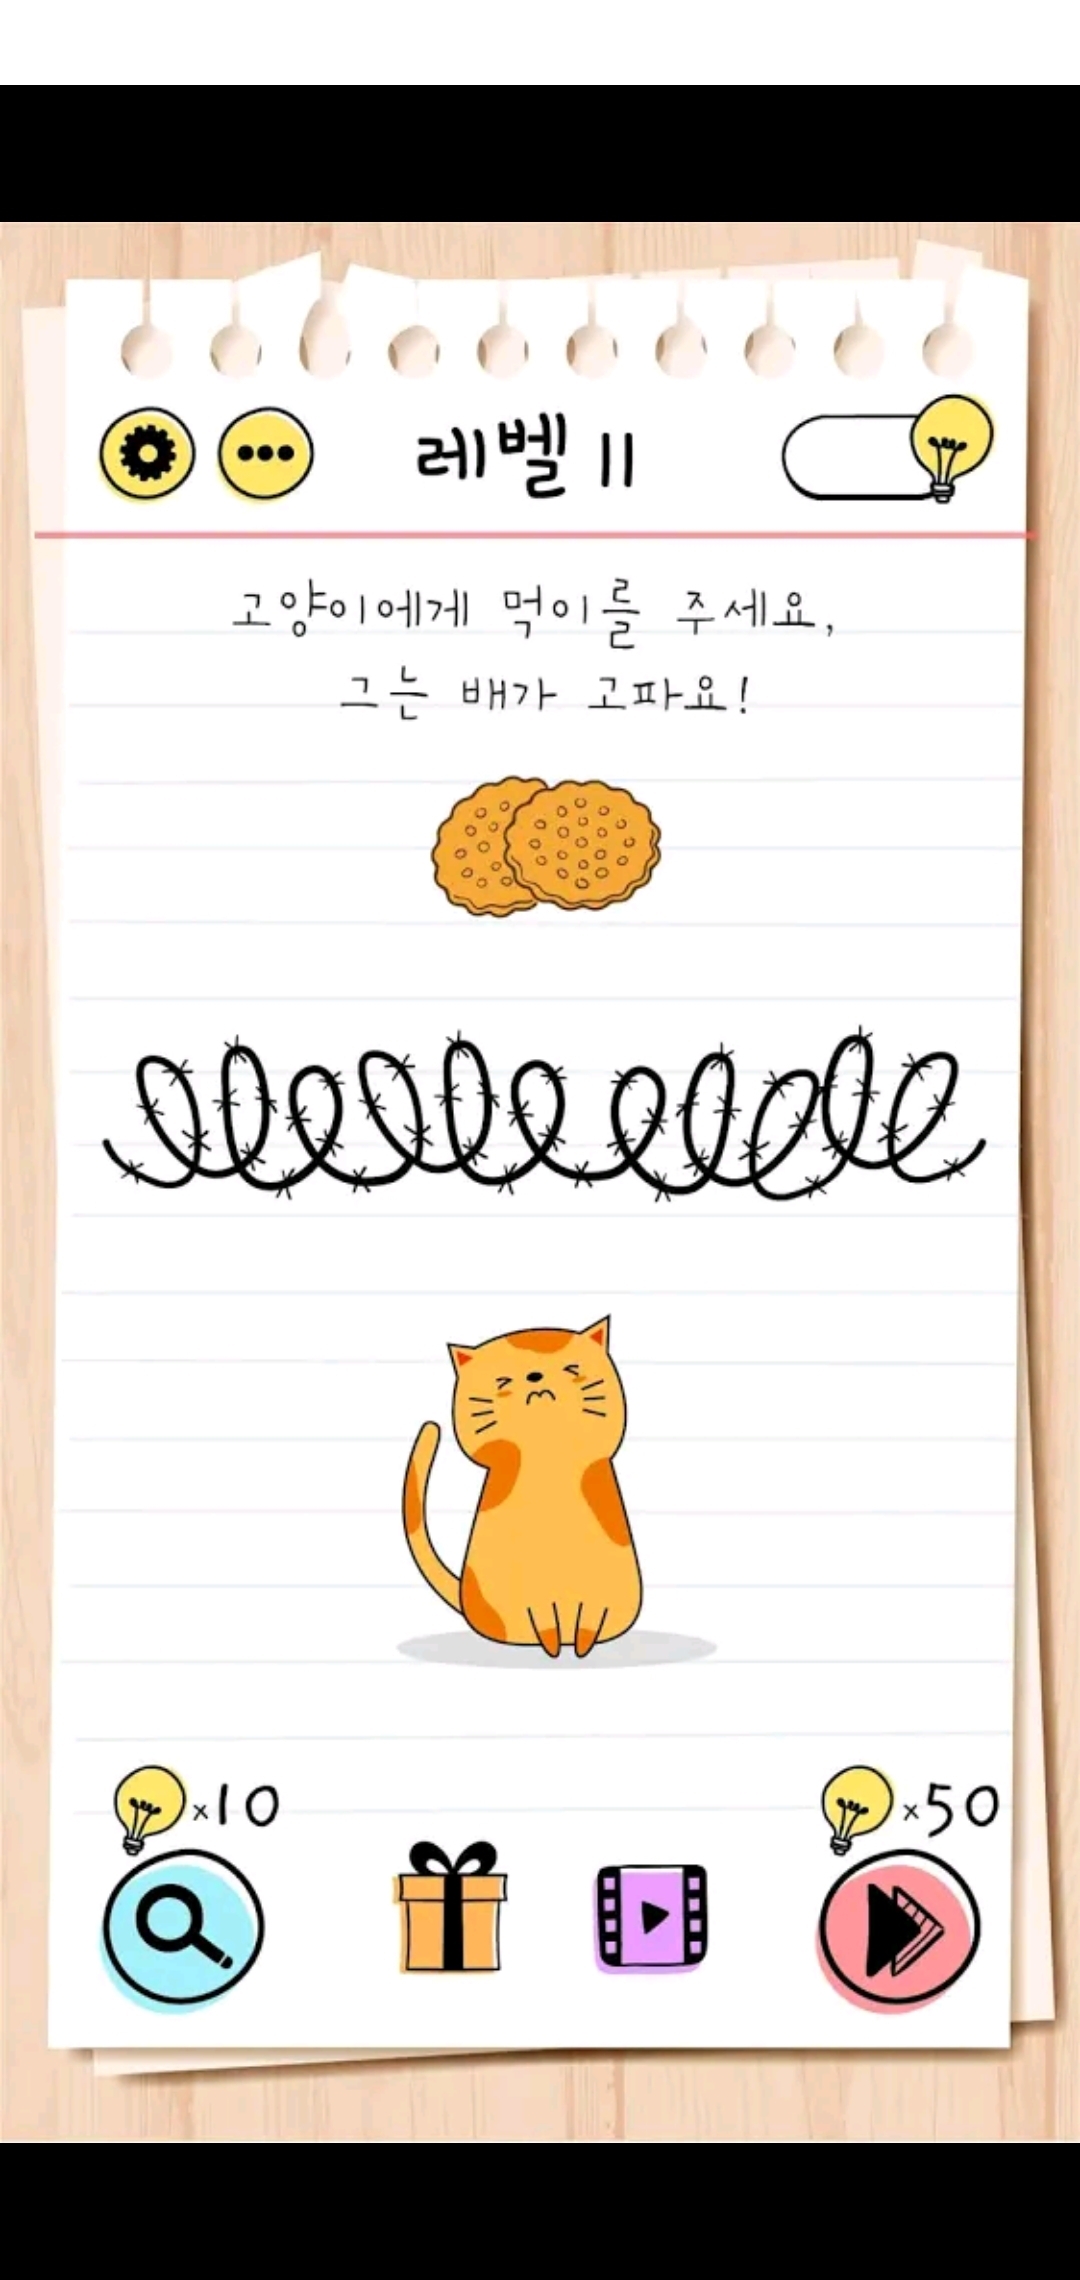 레벨 11
고양이에게 먹이를 주세요,
그는 배가 고파요!
×10
×50